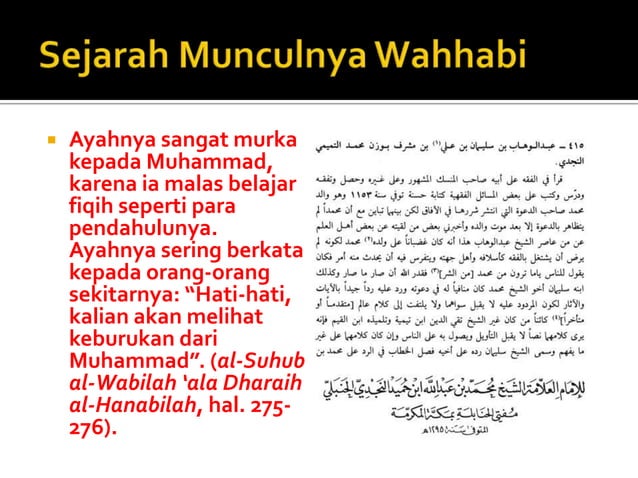 Sejarah Munculnya Wahhabi
Ayahnya sangat murka
kepada Muhammad,
karena ia malas belajar
fiqih seperti para
pendahulunya.
Ayahnya sering berkata
kepada orang-orang
sekitarnya: “Hati-hati,
kalian akan melihat
keburukan dari
Muhammad”. (al-Suhub
al-Wabilah ‘ala Dharaih
al-Hanabilah, hal. 275-
276).
٤١٥ – عبدالوهاب بن سليمان بن علي(١) بن مشرف بوزن محمد التميمي
النجدي.
قرأ في الفقه على أبيه صاحب المنسك المشهور وعلى غيره وحصل وتفقه
ودرّس وكتب على بعض المسائل الفقهية كتابة حسنة توفي سنة ١١٥٣ وهو والد
محمد صاحب الدعوة التي انتشر شررها في الآفاق لكن بينهما تباين مع أن محمداً لم
يتظاهر بالدعوة إلا بعد موت والده وأخبرني بعض من لقيته عن بعض أهل العلم
عن من عاصر الشيخ عبدالوهاب هذا أنه كان غضباناً على ولده(٢) محمد لكونه لم
يرض أن يشتغل بالفقه كأسلافه وأهل جهته ويتفرس فيه أن يحدث منه أمر فكان
يقول للناس ياما ترون من محمد [من الشر](٣) فقدر الله أن صار ما صار وكذلك
ابنه سليمان أخو الشيخ محمد كان منافياً له في دعوته ورد عليه رداً جيداً بالآيات
والآثار لكون المردود عليه لا يقبل سواهما ولا يلتفت إلى كلام عالم [متقدماً أو
متأخراً](٤) كائناً من كان غير الشيخ تقي الدين ابن تيمية وتلميذه ابن القيم فإنه
يرى كلامهما نصاً لا يقبل التأويل ويصول به على الناس وإن كان كلامهما على غير
ما يفهم وسمى الشيخ سليمان رده على أخيه فصل الخطاب في الرد على محمد بن
للإمام العلامة الشيخ محمد بن عبد الله ابن حميد النجدي الحنبلي
مفتي الحنابلة بمكة المكرمة
المتوفى سنة ١٢٩٥هـ